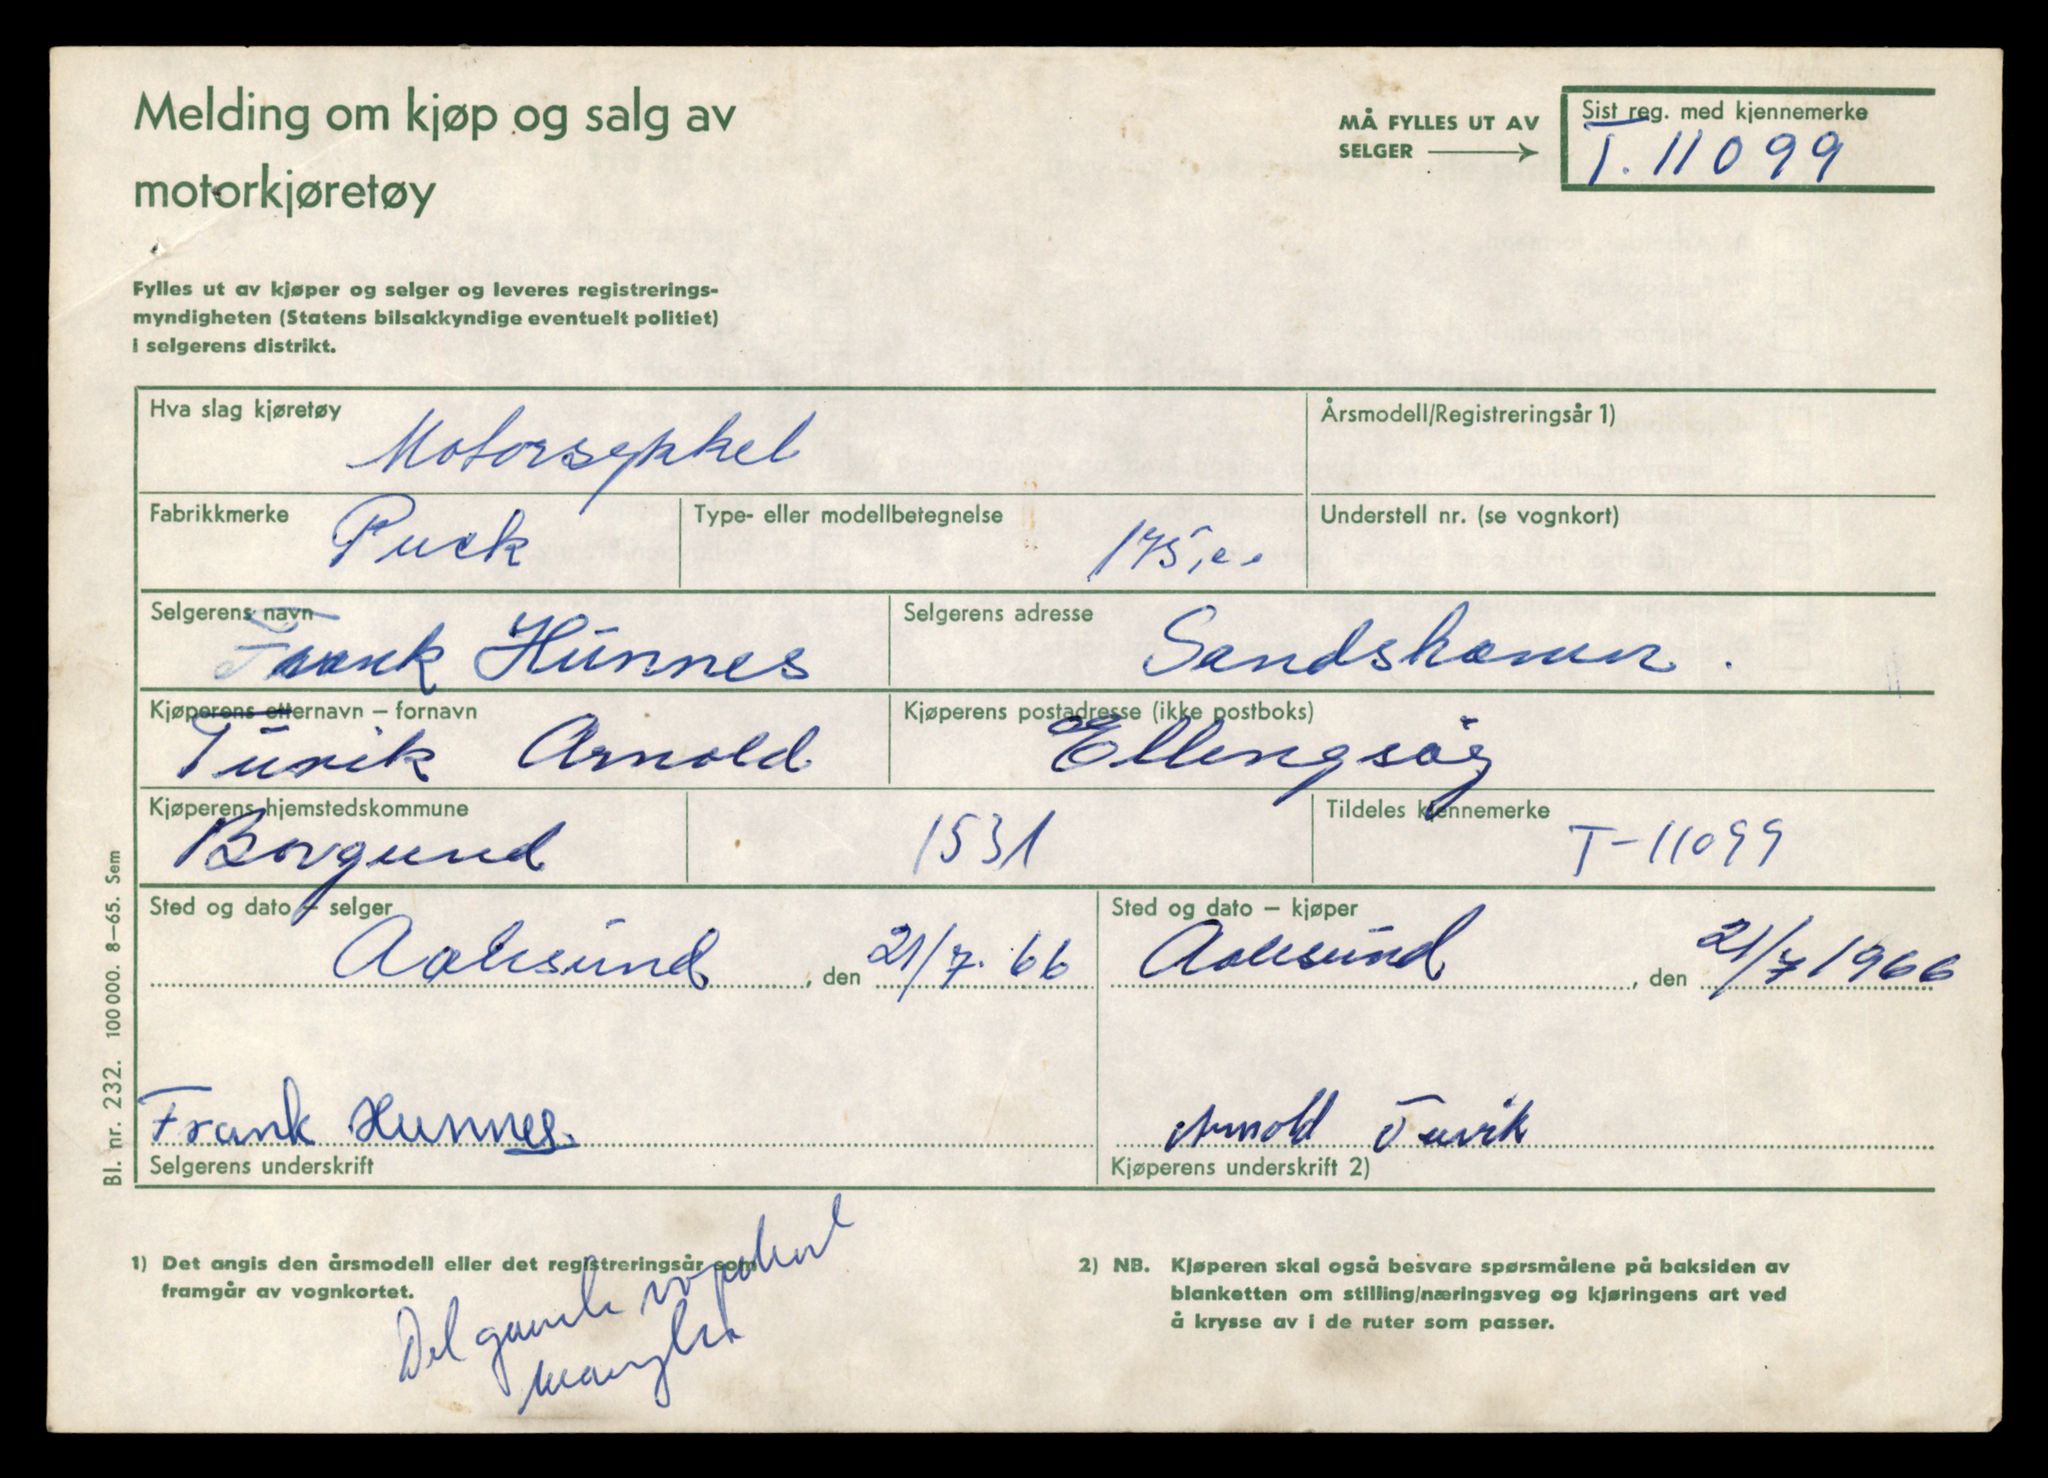 Melding om kjøp og salg av
motorkjøretøy
MÅ FYLLES UT AV
SELGER
Sist reg. med kjennemerke
T. 11099
Fylles ut av kjøper og selger og leveres registrerings-
myndigheten (Statens bilsakkyndige eventuelt politiet)
i selgerens distrikt.
Hva slag kjøretøy
Motorsykkel
Årsmodell/Registreringsår 1)
Fabrikkmerke
Puck
Type- eller modellbetegnelse
175,cc
Understell nr. (se vognkort)
Selgerens navn
Frank Hunnes
Selgerens adresse
Sandshamn.
Kjøperens etternavn – fornavn
Turik Arnold
Kjøperens postadresse (ikke postboks)
Ellengsøy
Kjøperens hjemstedskommune
Borgund
1531
Tildeles kjennemerke
T-11099
Sted og dato – selger
Aalesund, den 21/7. 66
Sted og dato – kjøper
Aalesund, den 21/7 1966
Frank Hunnes.
Selgerens underskrift
Arnold Tuvik
Kjøperens underskrift 2)
Bl. nr. 232. 100 000. 8–65. Sem
1) Det angis den årsmodell eller det registreringsår som
framgår av vognkortet.
2) NB. Kjøperen skal også besvare spørsmålene på baksiden av
blanketten om stilling/næringsveg og kjøringens art ved
å krysse av i de ruter som passer.
Del gamle vognkort
mangler